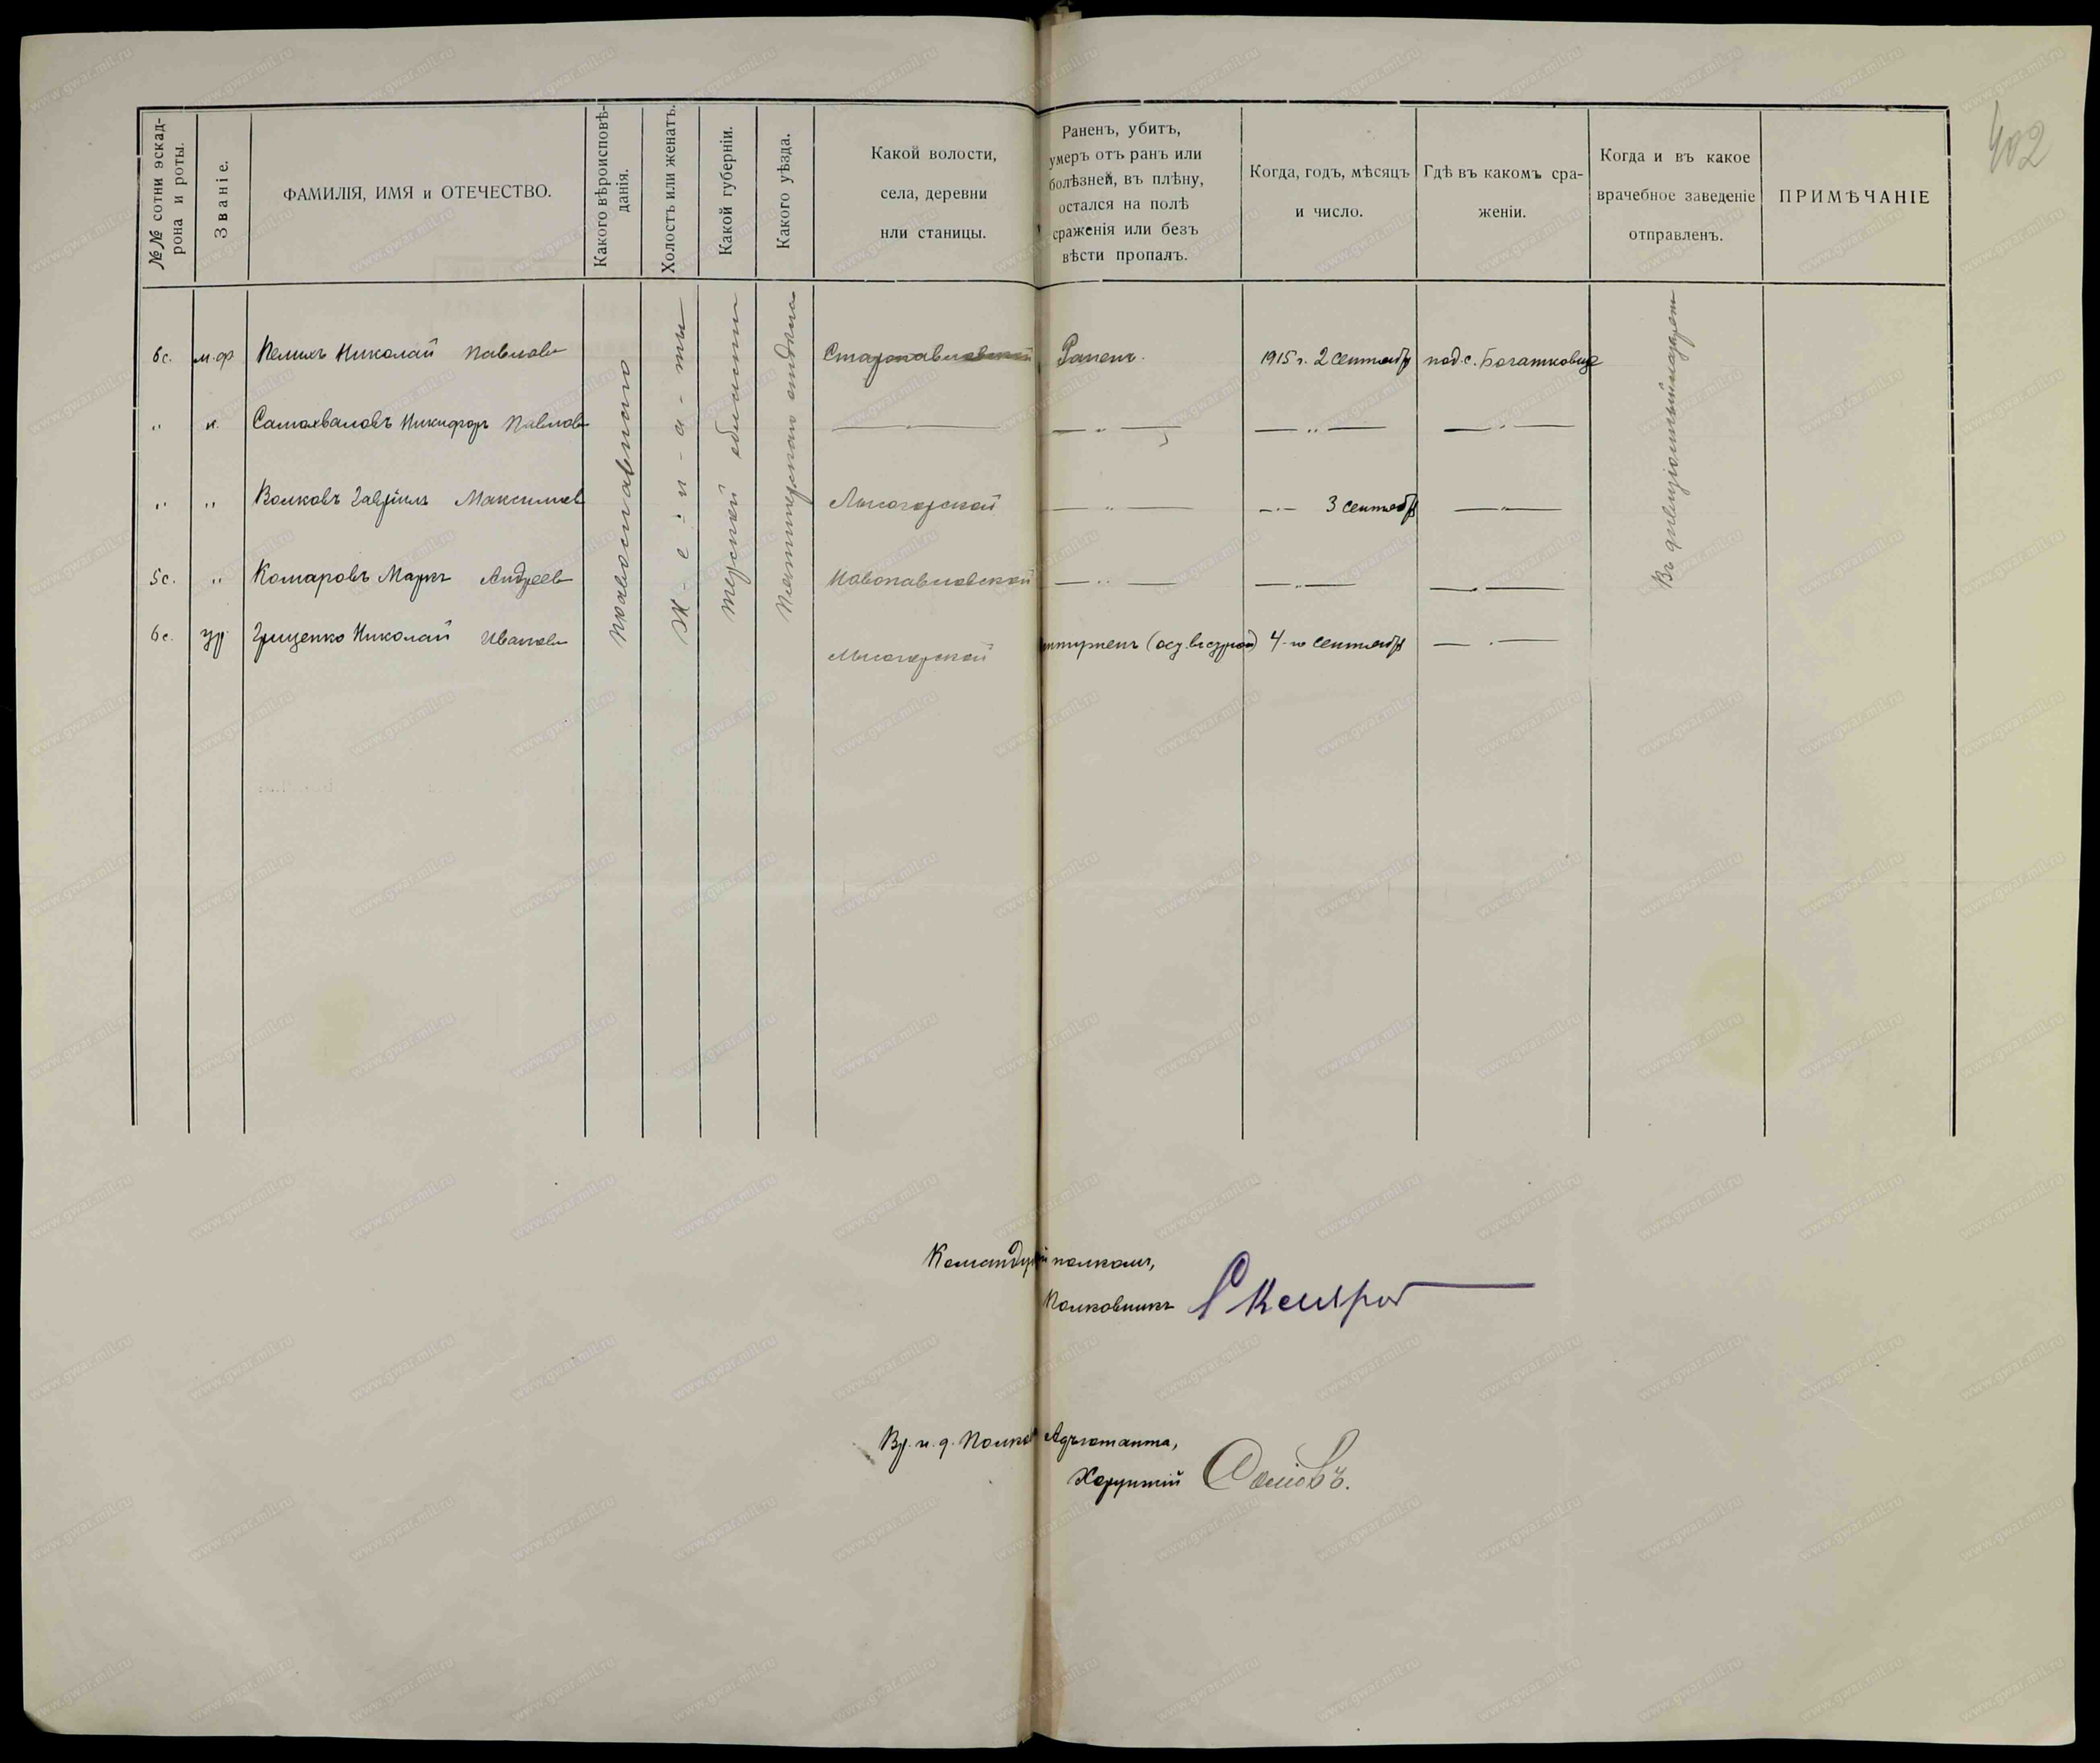 402
№№ сотни эскад-
рона и роты.
Званіе.
ФАМИЛІЯ, ИМЯ и ОТЕЧЕСТВО.
Какого вѣроисповѣ-
данія.
Холостъ или женатъ.
Какой губерніи.
Какого уѣзда.
Какой волости,
села, деревни
нли станицы.
Раненъ, убитъ,
умеръ отъ ранъ или
болѣзней, въ плѣну,
остался на полѣ
сраженія или безъ
вѣсти пропалъ.
Когда, годъ, мѣсяцъ
и число.
Гдѣ въ какомъ сра-
женіи.
Когда и въ какое
врачебное заведеніе
отправленъ.
ПРИМѢЧАНІЕ
6с. м.ф Пелихъ Николай Павловъ Старопавловской Раненъ. 1915 г. 2 сентябр под. с. Богатковце
" к. Самохваловъ Никифоръ Павлов — " — — " — — " — — " —
" " Волковъ Гавріилъ Максимов Лысогорской — " — — " — 3 сентябр — " —
5с. " Комаровъ Маркъ Андреев Новопавловской — " — — " — — " —
6с. ур. Грищенко Николай Иванов Лысогорской 4-го сентябр — " —
православнаго
Ж - е - н - а - ты
Терской области
Пятигорскаго отдѣла
Въ дивизіонный лазарет
Командующій полкомъ,
Полковникъ
Вр. и. д. Полков Адъютанта,
Хорунжій